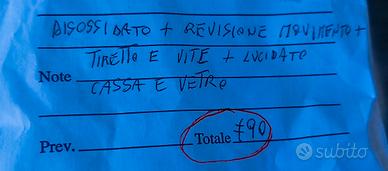 DISOSSIDATO + REVISIONE MOVIMENTO +
TIRETTO E VITE + LUCIDATO
Note CASSA E VETRO
Prev. Totale £90
subito